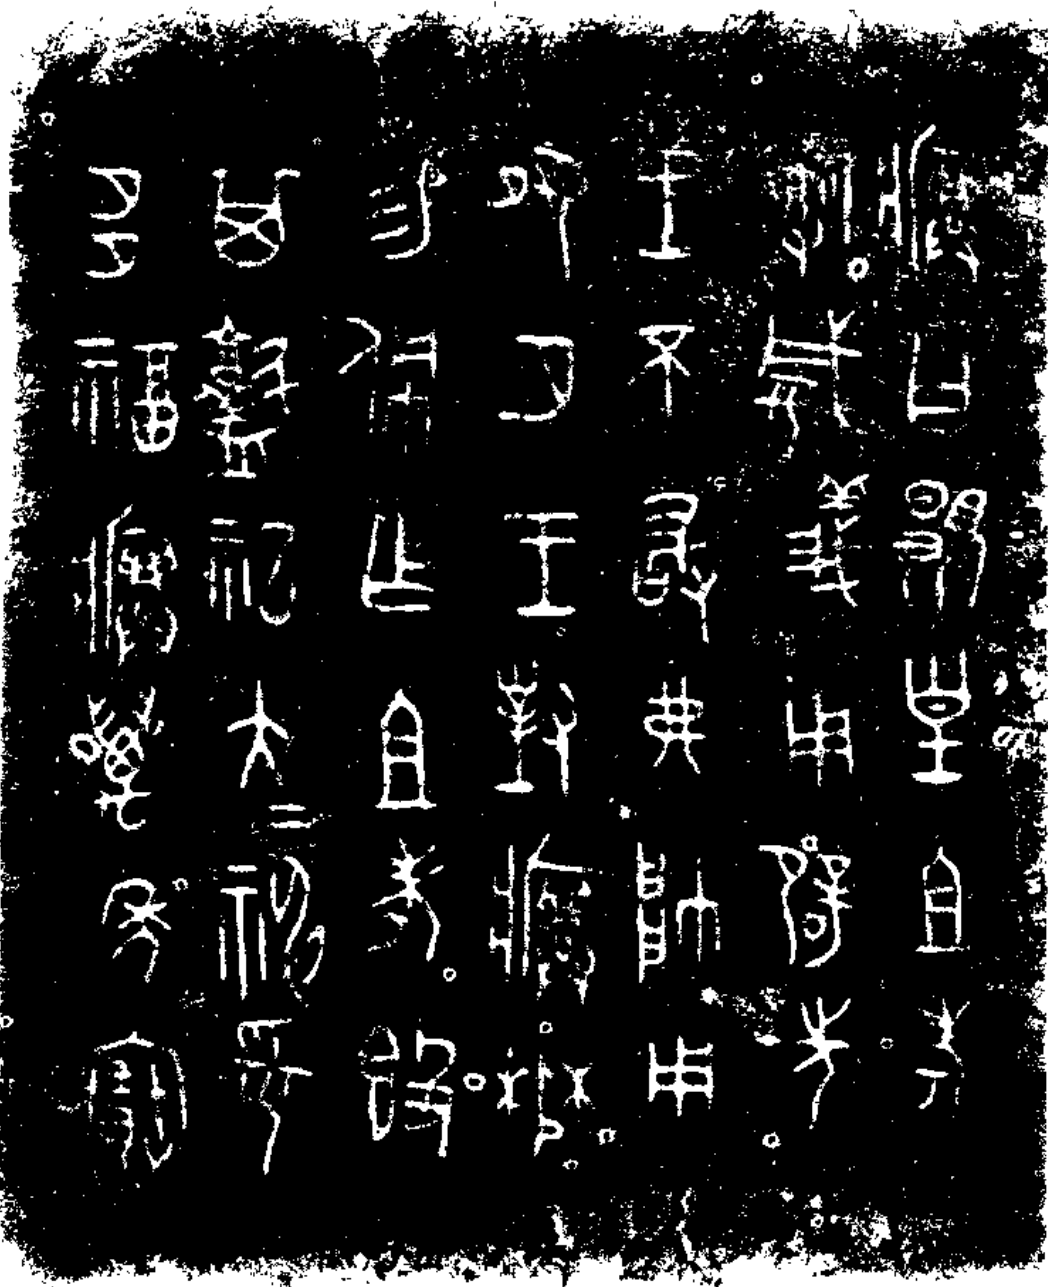 𤼈曰覭皇且考
𤔲威義用辟先
王不敢弗帥用
夙夕王對𤼈楙
易佩乍且考𣪘
其𩰫祀大=神=妥
多福𤼈萬年寶